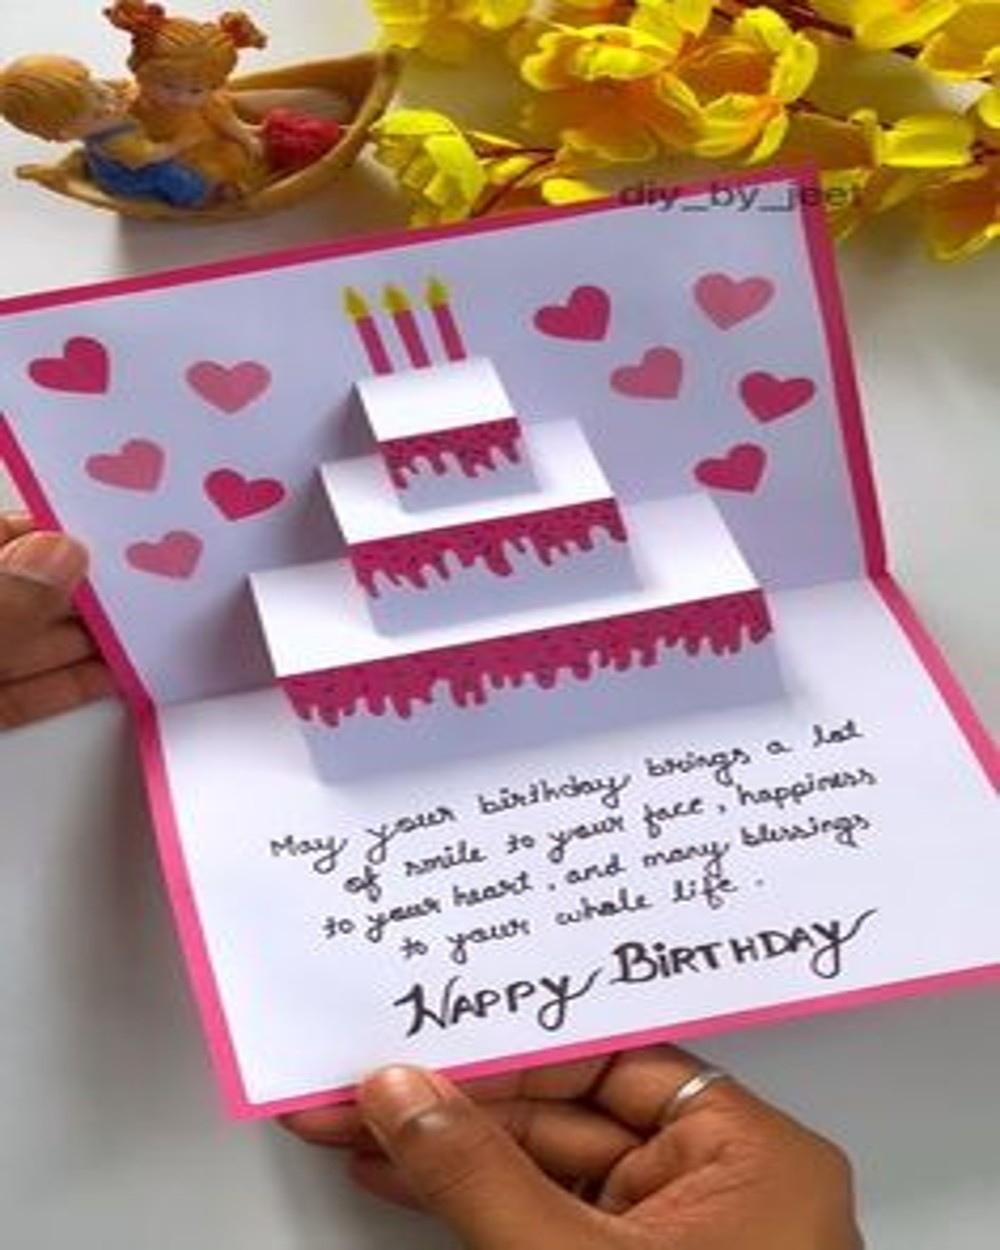 diy_by_jeet
May your birthday brings a lot
of smile to your face, happiness
to your heart, and many blessings
to your whole life.
HAPPY BIRTHDAY